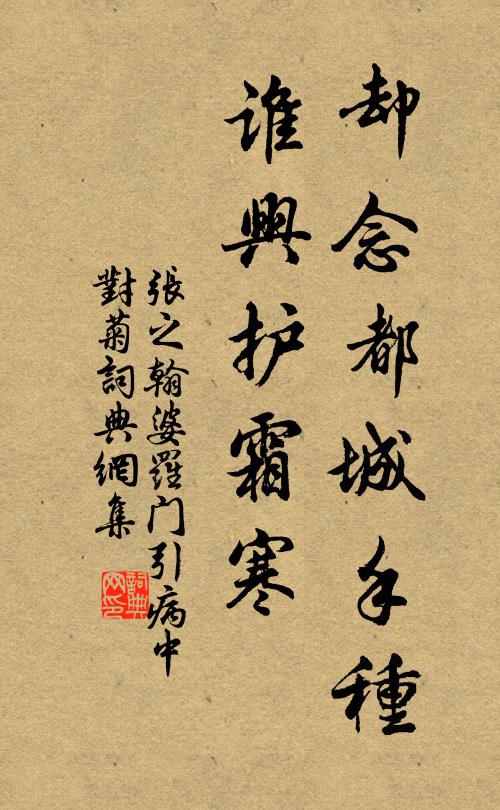 却念都城手種
誰興护霜寒
張之翰婆羅门引病中
對菊詞典網集
詞典网印